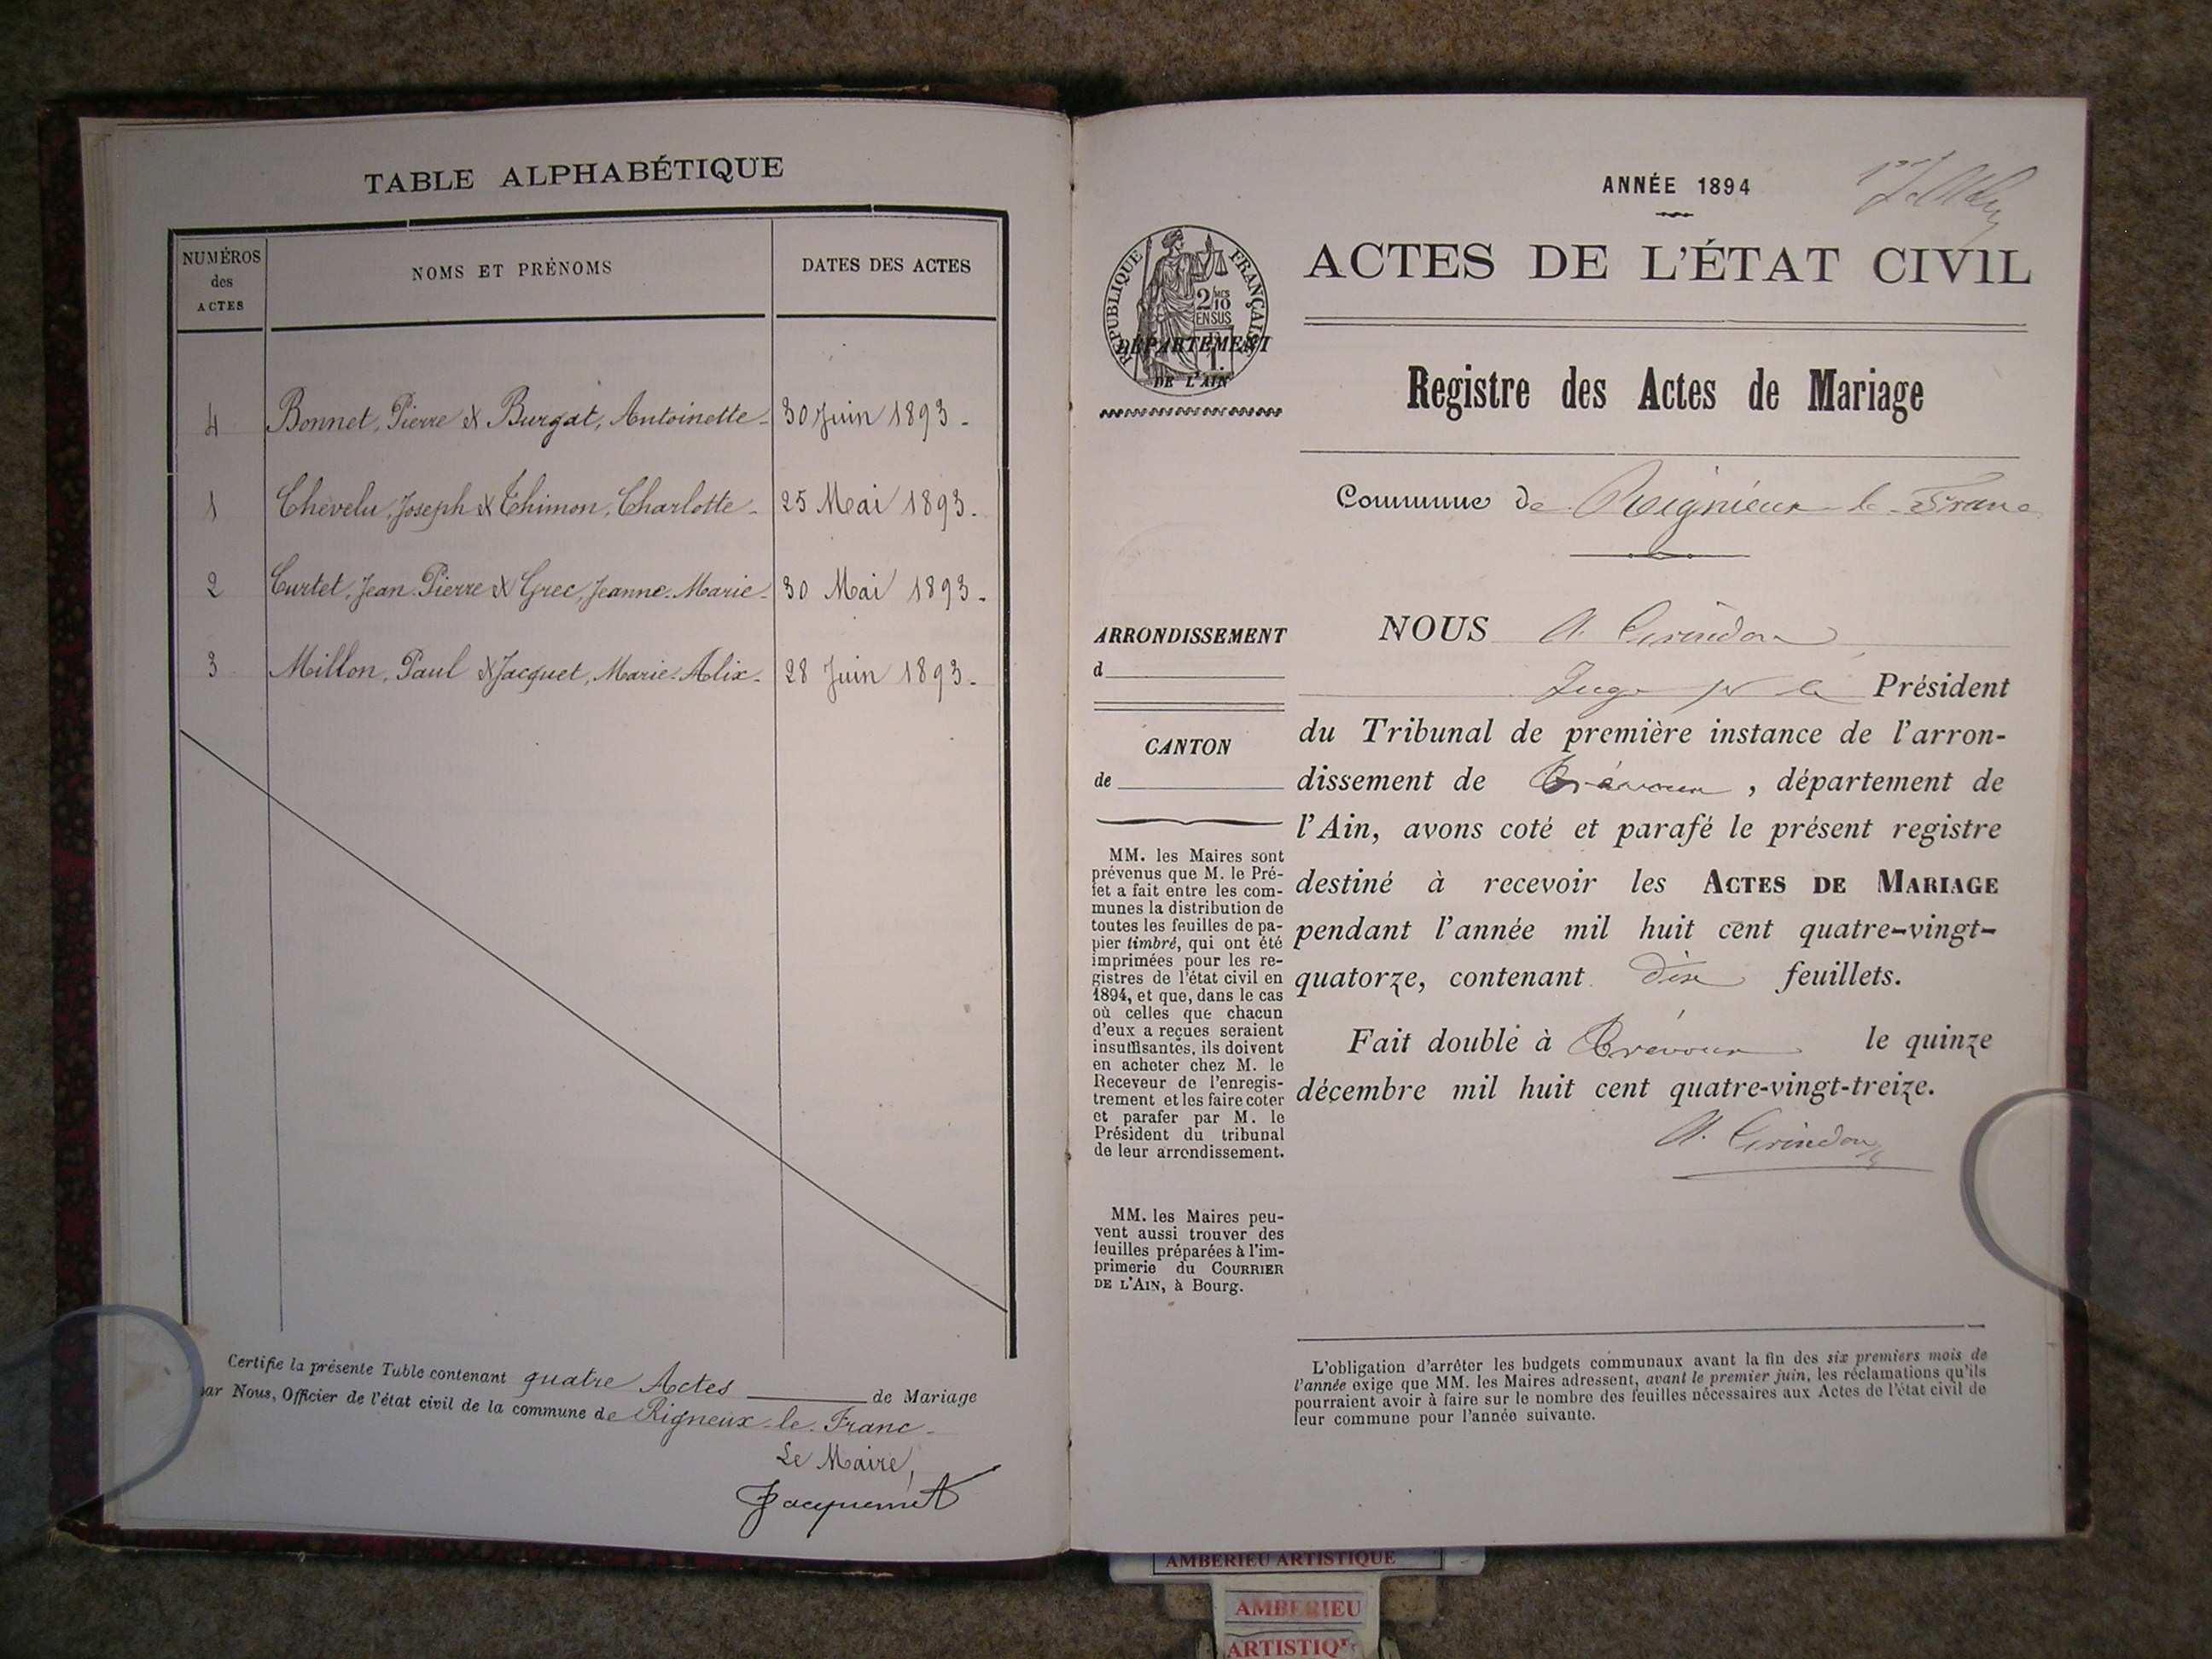 TABLE ALPHABÉTIQUE
NUMÉROS
des
ACTES
NOMS ET PRÉNOMS
DATES DES ACTES
4 Bonnet, Pierre & Burgat, Antoinette - 30 Juin 1893 -
1 Chevelu, Joseph & Thimon, Charlotte - 25 Mai 1893 -
2 Curtet, Jean Pierre & Grec, Jeanne-Marie - 30 Mai 1893 -
3 Millon, Paul & Jacquet, Marie-Alix - 28 Juin 1893 -
Certifie la présente Table contenant quatre Actes de Mariage
par Nous, Officier de l'état civil de la commune de Rigneux-le-Franc -
Le Maire,
Jacquemet
ANNÉE 1894
RÉPUBLIQUE FRANÇAISE
2/10
EN SUS
DÉPARTEMENT
DE L'AIN
ACTES DE L'ÉTAT CIVIL
Registre des Actes de Mariage
Commune de Reignieux-le-Franc
ARRONDISSEMENT
d
CANTON
de
MM. les Maires sont
prévenus que M. le Pré-
fet a fait entre les com-
munes la distribution de
toutes les feuilles de pa-
pier timbré, qui ont été
imprimées pour les re-
gistres de l'état civil en
1894, et que, dans le cas
où celles que chacun
d'eux a reçues seraient
insuffisantes, ils doivent
en acheter chez M. le
Receveur de l'enregis-
trement et les faire coter
et parafer par M. le
Président du tribunal
de leur arrondissement.
MM. les Maires peu-
vent aussi trouver des
feuilles préparées à l'im-
primerie du COURRIER
DE L'AIN, à Bourg.
NOUS A.
Juge pr le Président
du Tribunal de première instance de l'arron-
dissement de Trévoux, département de
l'Ain, avons coté et parafé le présent registre
destiné à recevoir les ACTES DE MARIAGE
pendant l'année mil huit cent quatre-vingt-
quatorze, contenant dix feuillets.
Fait double à Trévoux le quinze
décembre mil huit cent quatre-vingt-treize.
L'obligation d'arrêter les budgets communaux avant la fin des six premiers mois de
l'année exige que MM. les Maires adressent, avant le premier juin, les réclamations qu'ils
pourraient avoir à faire sur le nombre des feuilles nécessaires aux Actes de l'état civil de
leur commune pour l'année suivante.
AMBERIEU ARTISTIQUE
AMBERIEU
ARTISTIQUE